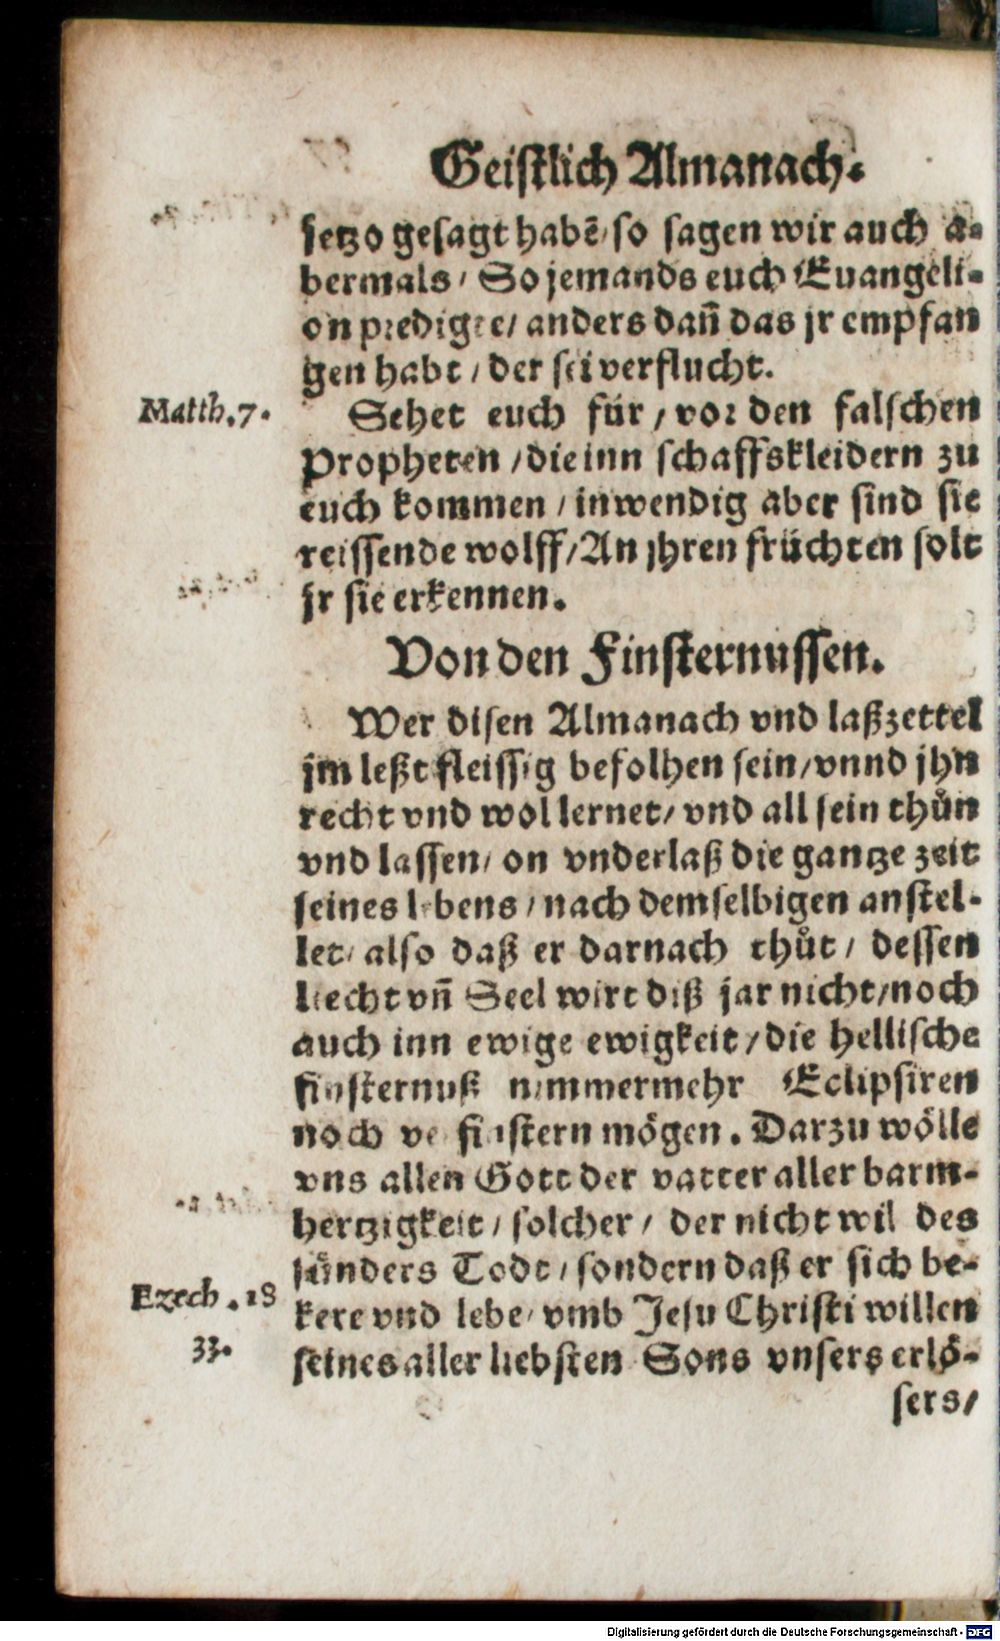 Geistlich Almanach.
jetzo gesagt habẽ/ so sagen wir auch a-
bermals/ So jemands euch Euangeli-
on predigte/ anders dañ das jr empfan
gen habt/ der sei verflucht.
Matth. 7.
Sehet euch für/ vor den falschen
Propheten/ die inn schaffskleidern zu
euch kommen/ inwendig aber sind sie
reissende wolff/ An jhren früchten solt
jr sie erkennen.
Von den Finsternussen.
Wer disen Almanach vnd laßzettel
jm leßt fleissig befolhen sein/ vnnd jhn
recht vnd wol lernet/ vnd all sein thůn
vnd lassen/ on vnderlaß die gantze zeit
seines lebens/ nach demselbigen anstel-
let/ also daß er darnach thůt/ dessen
liecht vñ Seel wirt diß jar nicht/ noch
auch inn ewige ewigkeit/ die hellische
finsternuß nimmermehr Eclipsiren
noch verfinstern mögen. Darzu wölle
vns allen Gott der vatter aller barm-
hertzigkeit/ solcher/ der nicht wil des
sünders Todt/ sondern daß er sich be-
Ezech. 18
kere vnd lebe/ vmb Jesu Christi willen
33.
seines aller liebsten Sons vnsers erlö-
sers/
Digitalisierung gefördert durch die Deutsche Forschungsgemeinschaft - DFG